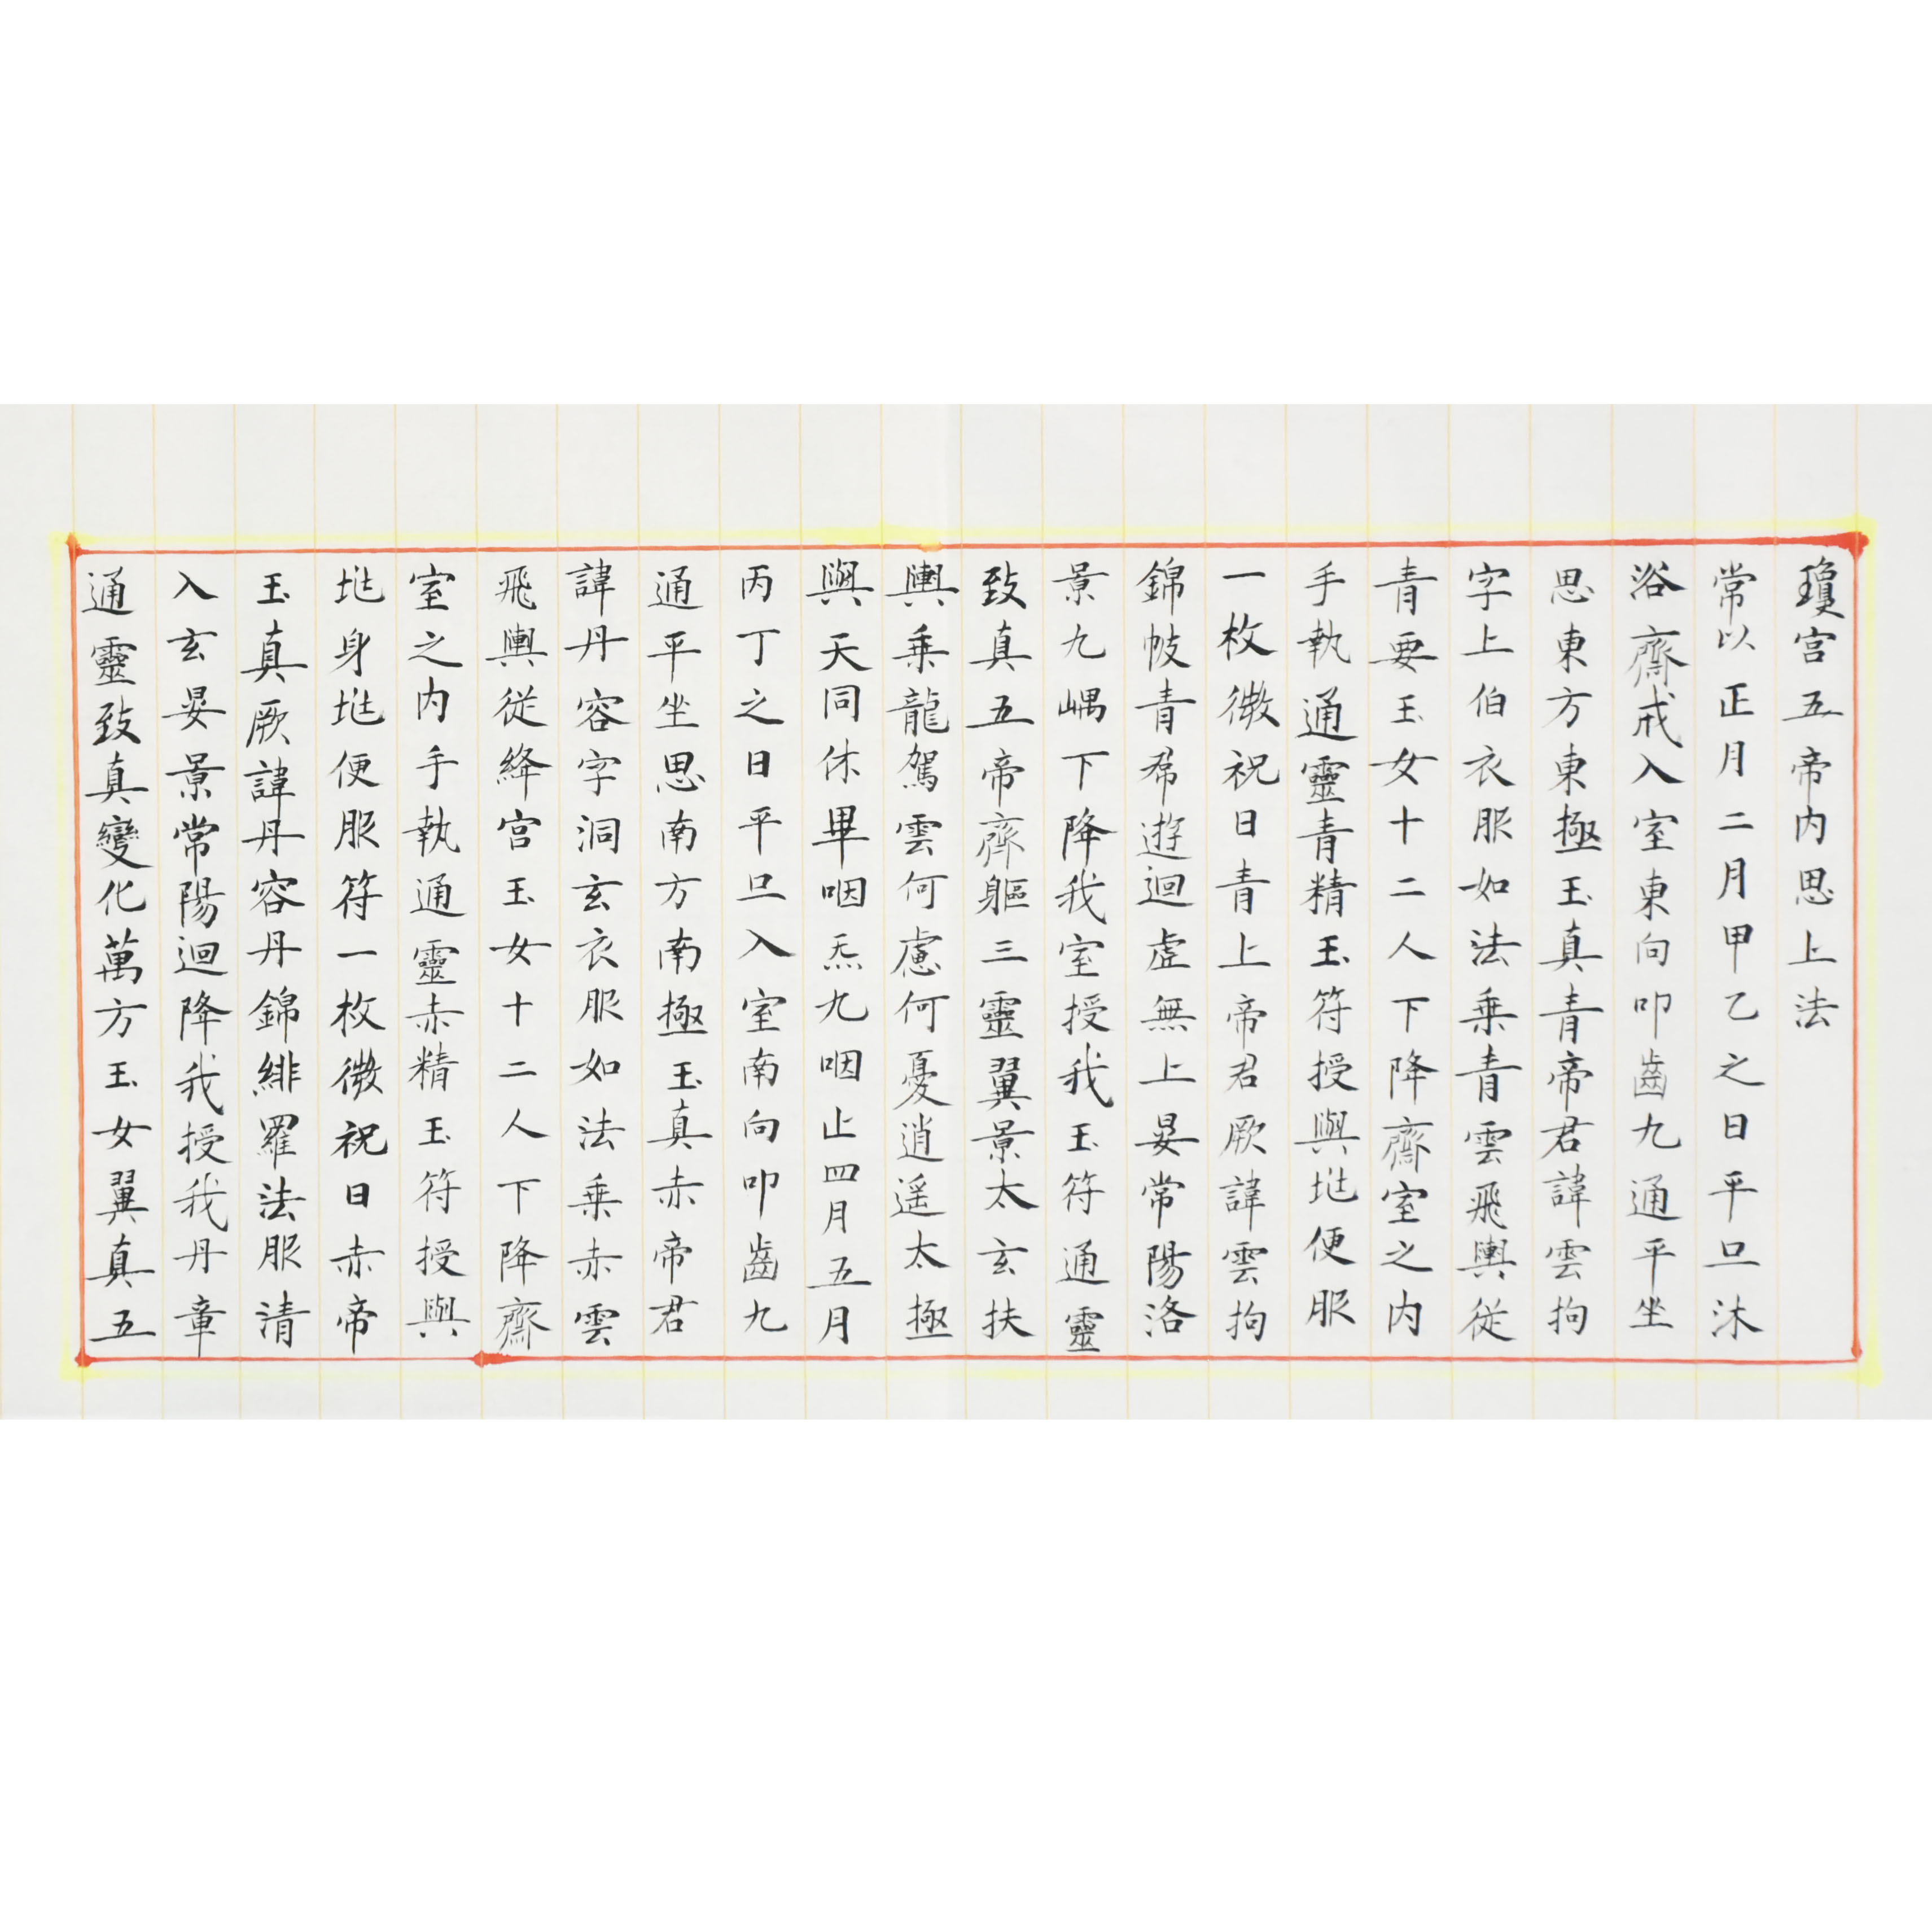 瓊宮五帝内思上法
常以正月二月甲乙之日平旦沐
浴齋戒入室東向叩齒九通平坐
思東方東極玉真青帝君諱雲拘
字上伯衣服如法乗青雲飛輿従
青要玉女十二人下降齋室之内
手執通靈青精玉符授與兆便服
一枚微祝曰青上帝君厥諱雲拘
錦帔青帬遊迴虛無上晏常陽洛
景九嵎下降我室授我玉符通靈
致真五帝齊軀三靈翼景太玄扶
輿乗龍駕雲何慮何憂逍遥太極
與天同休畢咽炁九咽止四月五月
丙丁之日平旦入室南向叩齒九
通平坐思南方南極玉真赤帝君
諱丹容字洞玄衣服如法乗赤雲
飛輿従絳宮玉女十二人下降齋
室之内手執通靈赤精玉符授與
兆身兆便服符一枚微祝曰赤帝
玉真厥諱丹容丹錦緋羅法服清
入玄晏景常陽迴降我授我丹章
通靈致真變化萬方玉女翼真五